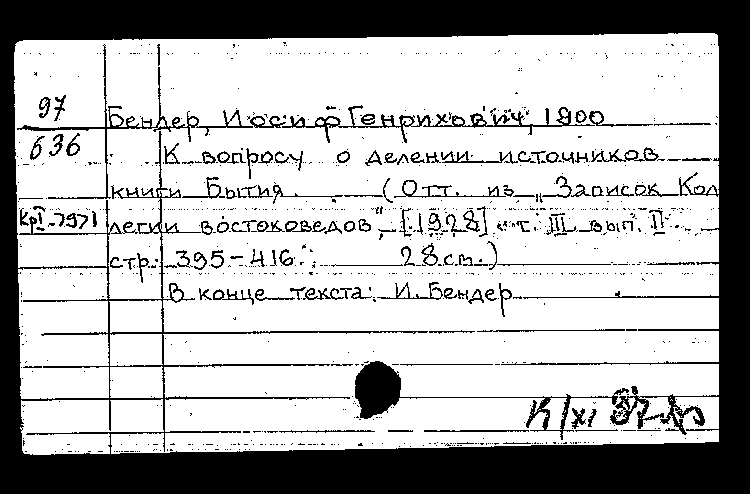 97
636
Бендер, Иосиф Генрихович, 1900
К вопросу о делении источников
книги Бытия. (Отт. из „Записок Кол
КрІ-7971
легии востоковедов", [1928] т. III вып. II.
стр. 395-416.; 28 см.)
В конце текста: И. Бендер
К/XI 87